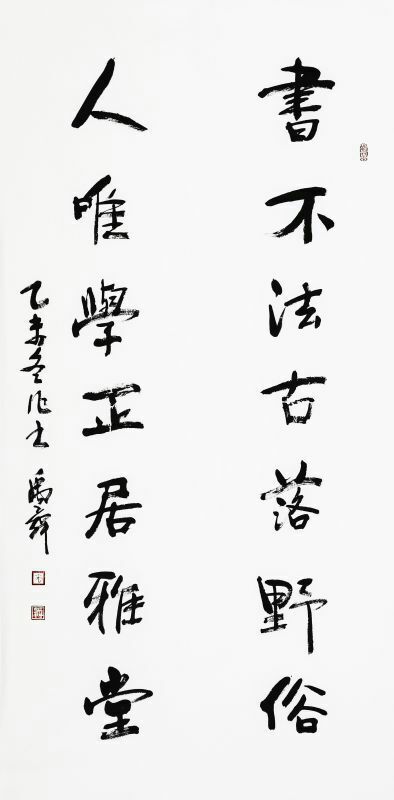 書不法古落野俗
人唯學正居雅堂
乙未冬作書禹舜